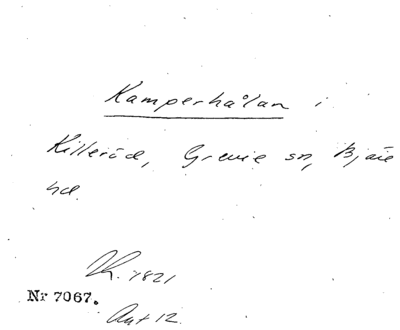 Kamperhålan i
Killeröd, Grevie sn, Bjäre
hd.
1821
Nr 7067.
12